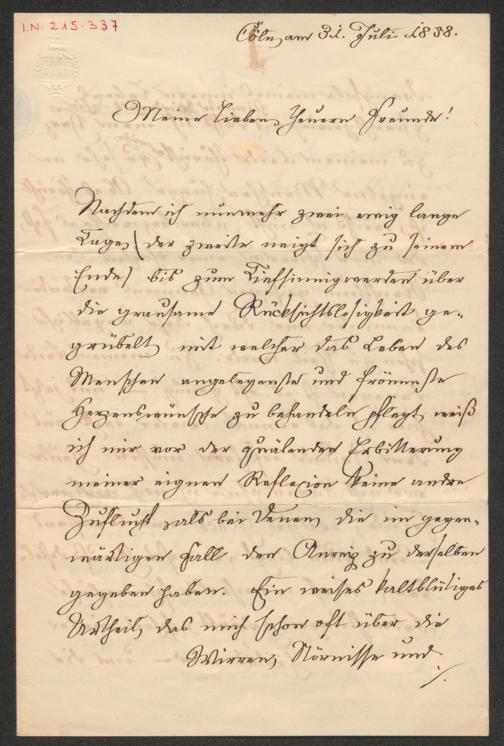 I.N. 215.337
Cöln, am 31. Juli 1858.
Meine lieben, theuern Freunde!
Nachdem ich nunmehr zwei ewig lange
Tage, (der zweite neigt sich zu seinem
Ende) bis zum Tiefsinnigwerden über
die grausame Rücksichtslosigkeit ge-
grübelt, mit welcher das Leben des
Menschen angelegenste und frömmste
Herzenswünsche zu behandeln pflegt, weiß
ich mir vor der quälenden Erbitterung
meiner eignen Reflexion keine andre
Zuflucht, als bei Denen, die im gegen-
wärtigen Fall den Anreiz zu derselben
gegeben haben. Ein weises kaltblütiges
Urtheil, das mich schon oft über die
Wirren, Störnisse und
./.